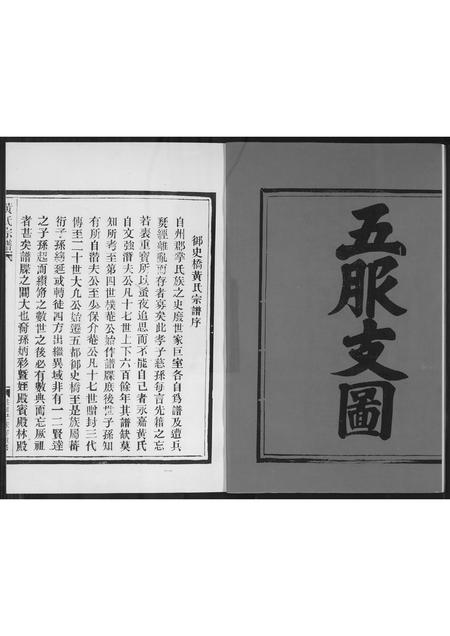 五服支圖
御史橋黃氏宗譜序
自州郡掌氏族之史廢世家巨室各自爲譜及遭兵
燹經離亂而存者寡矣此孝子慈孫每言先籍之忘
若衷重寶所以蚤夜追思而不能自己者永嘉黃氏
自文強潛夫公凡十七世上下六百餘年其譜缺莫
知所考至第四世樸菴公始作譜牒庶後世子孫知
有所自潛夫公至少保介菴公凡十七世贈封三代
傳至二十世大九公始遷五都御史橋至是族屬蕃
衍子孫緜延或轉徙四方出繼異域非有一二賢達
之子孫起而續脩之數世之後必有數典而忘厥祖
者甚矣譜牒之關大也裔孫炳彩暨姪殿賓殿林殿
黃氏宗譜